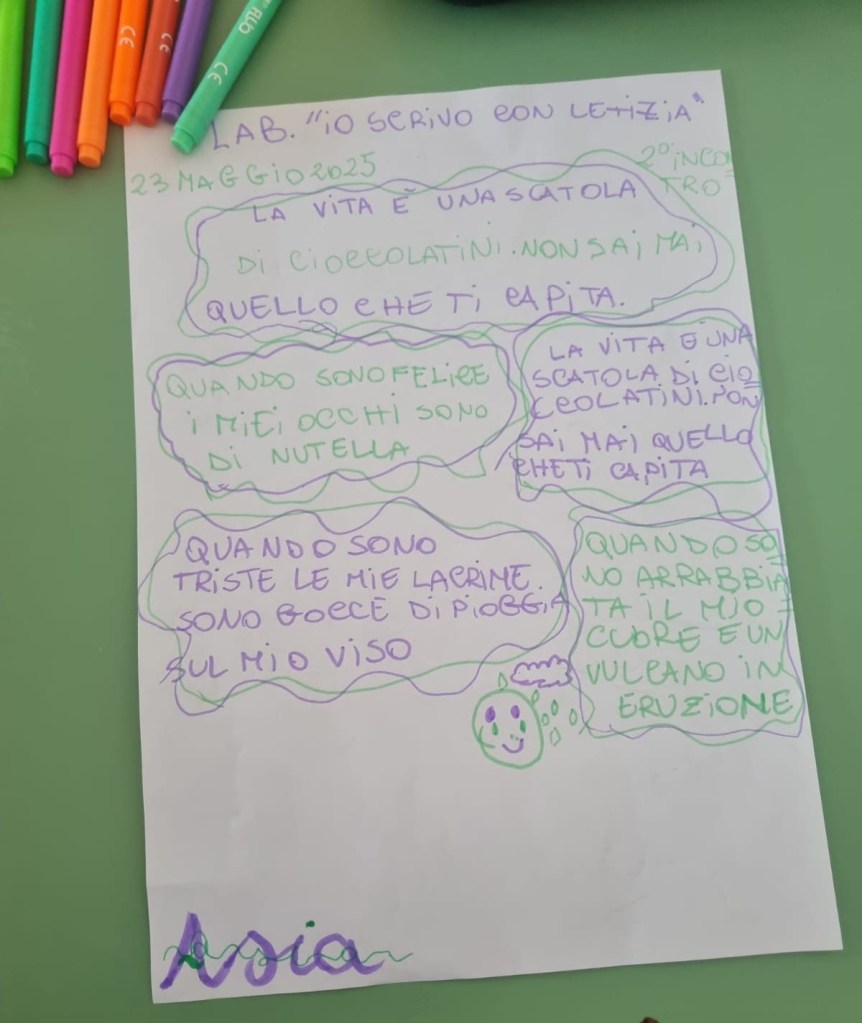 LAB. "iO SCRIVO CON LETIZIA"
23 MAGGIO 2025
2° iNCON=
TRO
LA ViTA È UNA SCATOLA
Di CiOCCOLATiNi. NON SAi MAi
QUELLO CHE Ti CAPiTA.
QUANDO SONO FELiCE
i MiEi OCCHi SONO
Di NUTELLA
LA ViTA È UNA
SCATOLA Di CiO=
CCOLATiNi. NON
SAi MAi QUELLO
CHE Ti CAPiTA
QUANDO SONO
TRiSTE LE MiE LACRiME
SONO GOCCE Di PiOGGiA
SUL MiO ViSO
QUANDO SO=
NO ARRABBiA=
TA iL MiO
CUORE È UN
VULCANO iN
ERUZiONE
Asia
CE
CE
CE